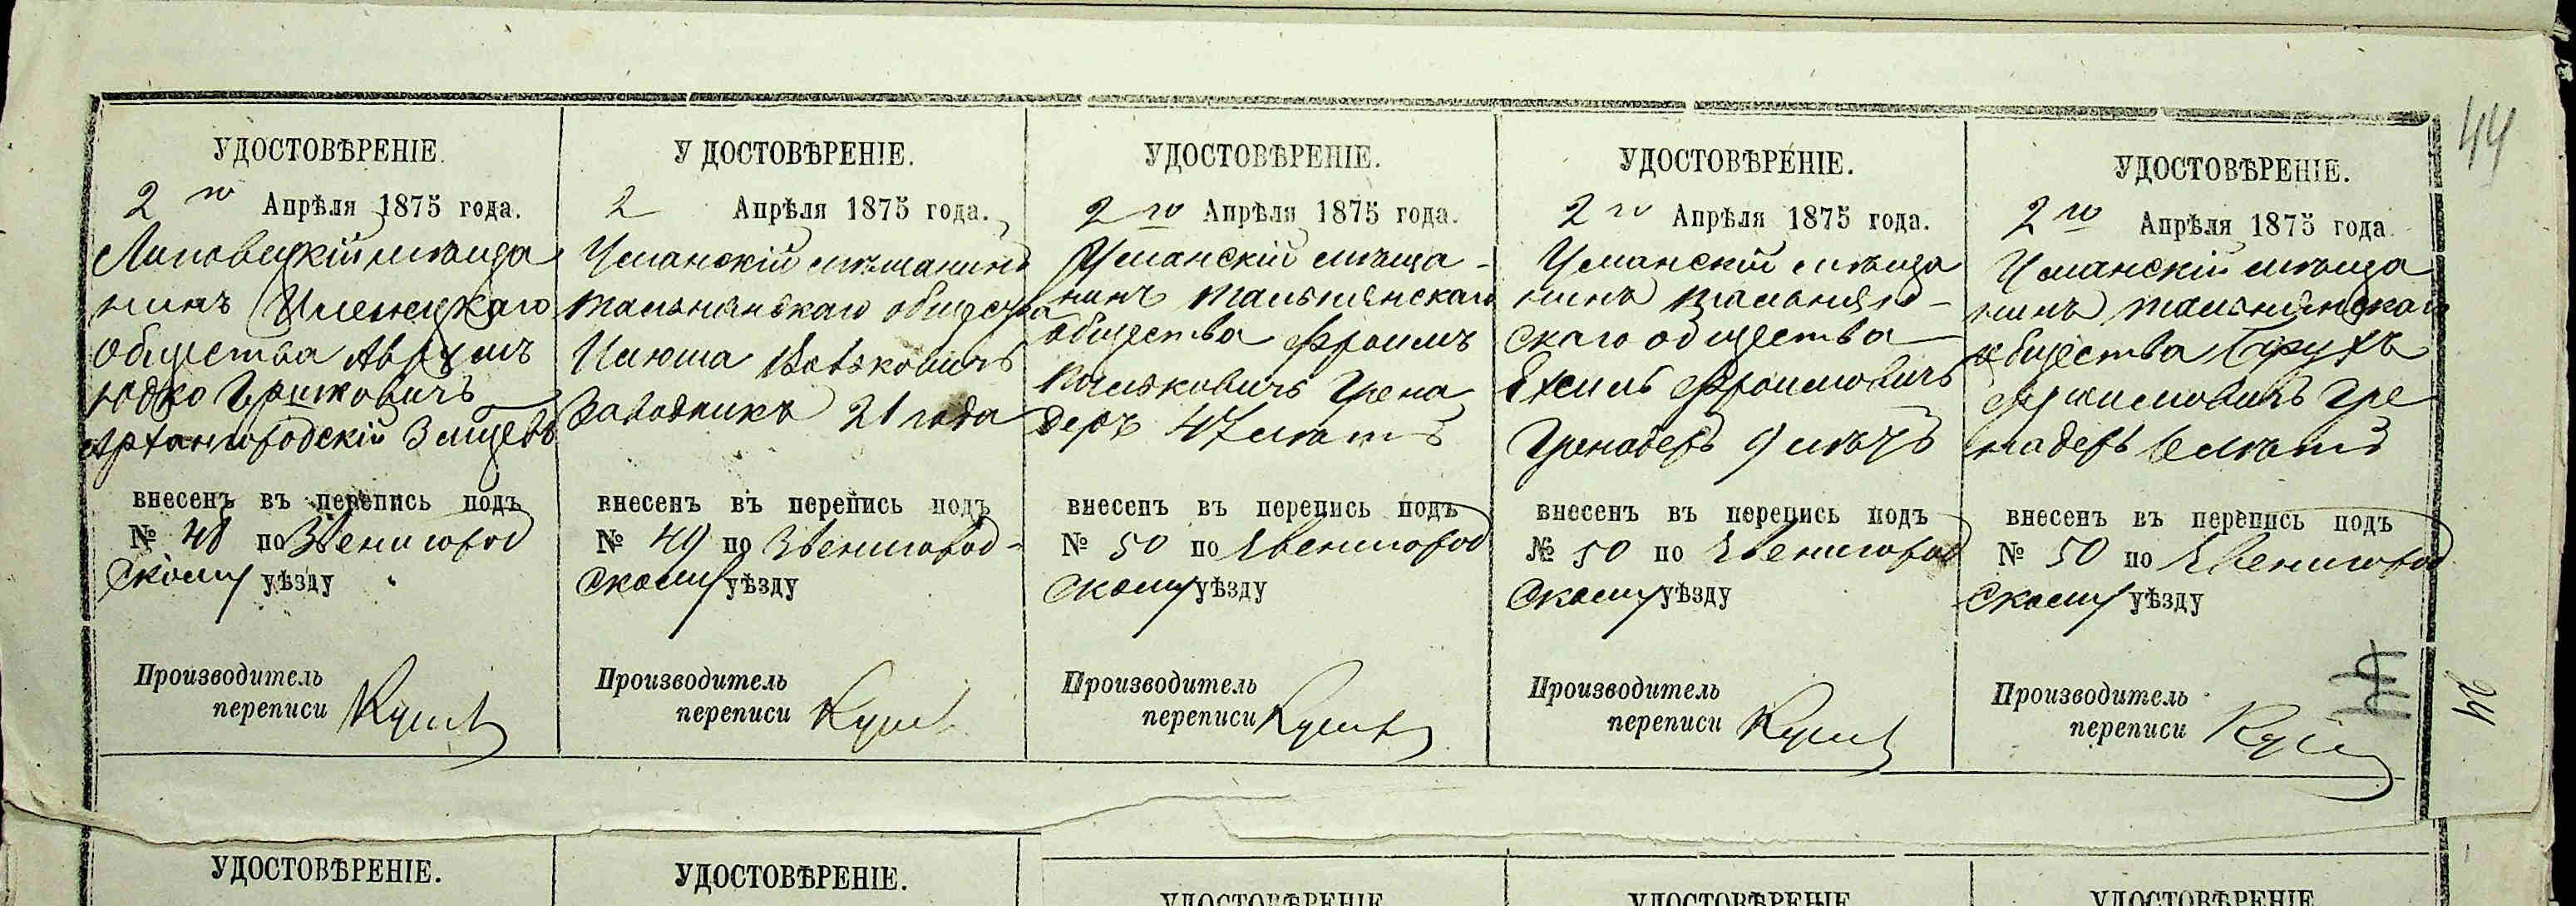 44
УДОСТОВѢРЕНІЕ.
2го Апрѣля 1875 года.
Липовецкій мѣща
нинъ Илинецкаго
общества Аврумъ
Юдко Гершковичъ
внесенъ въ перепись подъ
№ 48 по Звенигород
скому уѣзду
Производитель
переписи
УДОСТОВѢРЕНІЕ.
2 Апрѣля 1875 года.
Уманскій мѣщанинъ
тальнянскаго общества
Заводникъ 21 года
внесенъ въ перепись подъ
№ 49 по Звенигород-
скому уѣзду
Производитель
переписи
УДОСТОВѢРЕНІЕ.
2го Апрѣля 1875 года.
Уманскій мѣща-
нинъ тальнянскаго
общества Фроимъ
Грена
деръ 47 лѣтъ
внесенъ въ перепись подъ
№ 50 по Звенигород
скому уѣзду
Производитель
переписи
УДОСТОВѢРЕНІЕ.
2го Апрѣля 1875 года.
Уманскій мѣща
нинъ тальнян-
скаго общества
Фроимовичъ
Гренадеръ 9 лѣтъ
внесенъ въ перепись подъ
№ 50 по Звенигород
скому уѣзду
Производитель
переписи
УДОСТОВѢРЕНІЕ.
2го Апрѣля 1875 года
Уманскій мѣща
нинъ тальнянскаго
общества Борухъ
Фроимовичъ Гре
надеръ лѣтъ
внесенъ въ перепись подъ
№ 50 по Звенигород
скому уѣзду
Производитель
переписи
44
УДОСТОВѢРЕНІЕ.
УДОСТОВѢРЕНІЕ.
УДОСТОВѢРЕНІЕ
УДОСТОВѢРЕНІЕ
УДОСТОВѢРЕНІЕ